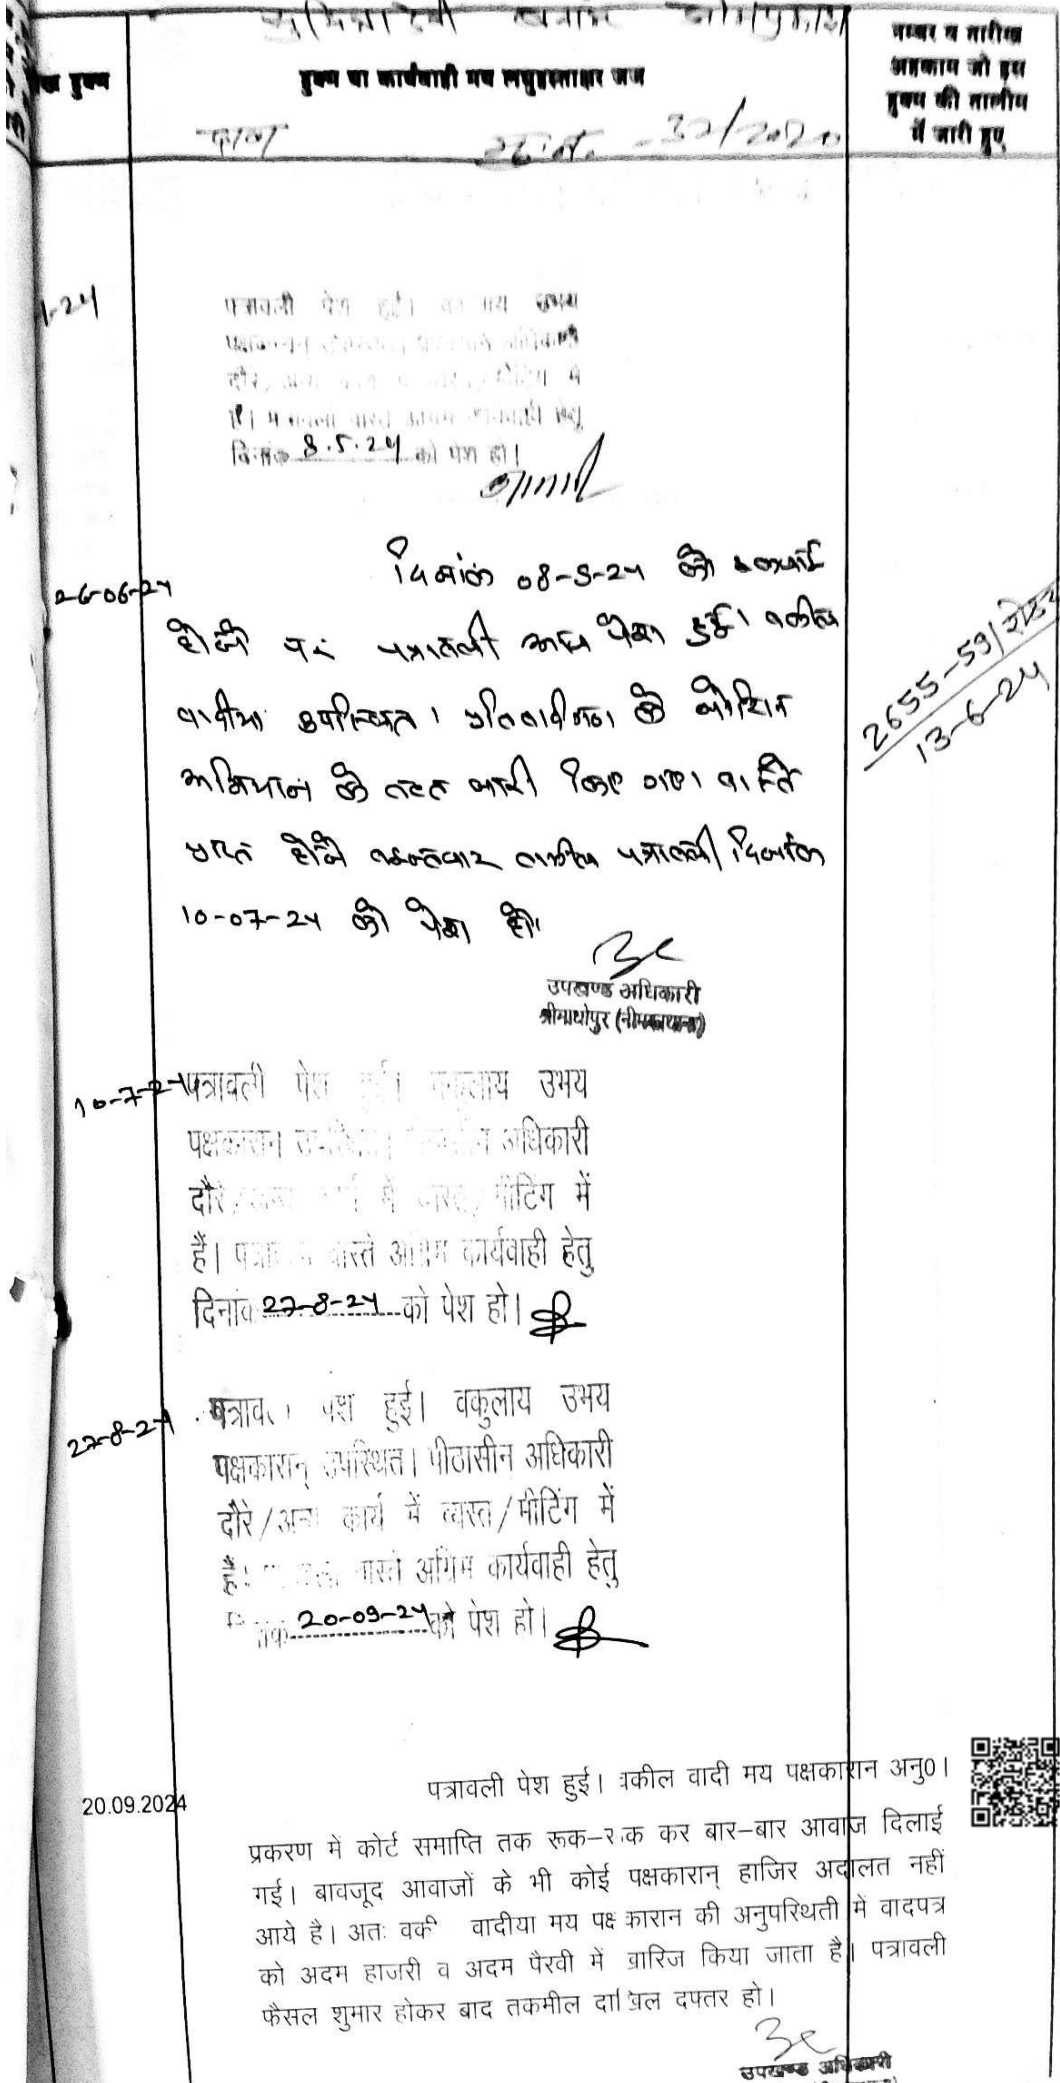 सुमित्रादेवी बनाम ओमप्रकाश
नम्बर व तारीख
अहकाम जो इस
हुक्म की तामील
में जारी हुए
हुक्म
हुक्म या कार्यवाही मय लघुहस्ताक्षर जज
32/2020
-24
पत्रावली पेश हुई। उभय
अधिकारी
दौरे मीटिंग में
दिनांक 8.5.24 को पेश हो।
26-06-24
दिनांक 08-5-24 को
होने पर पत्रावली आज पेश हुई। वकील
वादीया उपस्थित। प्रतिवादीगण के नोटिस
अभियान के तहत जारी किए गए। वास्ते
प्राप्त होने तामील पत्रावली दिनांक
10-07-24 को पेश हो।
2655-59/रीडर
13-6-24
उपखण्ड अधिकारी
श्रीमाधोपुर (नीमकाथाना)
10-7-24
पत्रावली पेश हुई। वकुलाय उभय
पक्षकारान उपस्थित। अधिकारी
दौरे में मीटिंग में
हैं। वास्ते अग्रिम कार्यवाही हेतु
दिनांक 27-8-24 को पेश हो।
27-8-24
पत्रावली पेश हुई। वकुलाय उभय
पक्षकारान् उपस्थित। पीठासीन अधिकारी
दौरे/अन्य कार्य में व्यस्त/मीटिंग में
हैं। वास्ते अग्रिम कार्यवाही हेतु
20-09-24 को पेश हो।
पत्रावली पेश हुई। वकील वादी मय पक्षकारान अनु0।
20.09.2024
प्रकरण में कोर्ट समाप्ति तक रूक-रूक कर बार-बार आवाज दिलाई
गई। बावजूद आवाजों के भी कोई पक्षकारान् हाजिर अदालत नहीं
आये है। अतः वकील वादीया मय पक्षकारान की अनुपस्थिती में वादपत्र
को अदम हाजरी व अदम पैरवी में खारिज किया जाता है। पत्रावली
फैसल शुमार होकर बाद तकमील दाखिल दफ्तर हो।
उपखण्ड अधिकारी